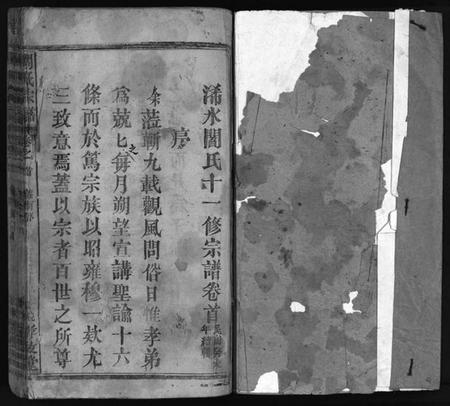 浠水閻氏十一修宗譜卷首
序
余蒞蘄九載觀風問俗日惟孝弟
為兢兢之每月朔望宣講聖諭十六
條而於篤宗族以昭雍穆一欵尤
三致意焉蓋以宗者百世之所尊